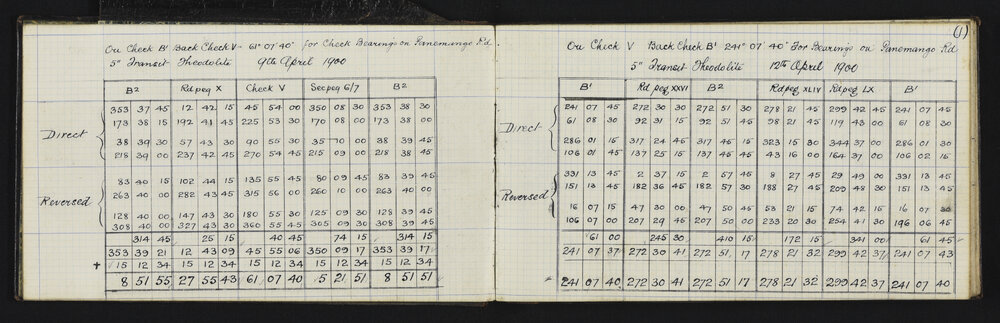 On Check B' Back Check V - 61° 07' 40" for Check Bearings on Panemango Rd.
5" Transit Theodolite 9th April 1900
B2 Rd peg X Check V Sec peg 6/7 B2
353 37 45 12 42 15 45 54 00 350 08 30 353 38 30
173 38 15 192 41 45 225 53 30 170 08 00 173 38 00
Direct
38 39 30 57 43 30 90 55 30 35 70 00 38 39 45
218 39 00 237 42 45 270 54 45 215 09 00 218 38 45
83 40 15 102 44 15 135 55 45 80 09 45 83 39 45
263 40 00 282 43 45 315 56 00 260 10 00 263 40 00
Reversed
128 40 00 147 43 30 180 55 30 125 09 30 128 39 45
308 40 00 327 43 30 360 55 45 305 09 30 308 39 45
314 45 25 15 40 45 74 15 314 15
353 39 21 12 43 09 45 55 06 350 09 17 353 39 17
+ 15 12 34 15 12 34 15 12 34 15 12 34 15 12 34
8 51 55 27 55 43 61 07 40 5 21 51 8 51 51
(1)
On Check V Back Check B' 241° 07' 40" For Bearings on Panemango Rd
5" Transit Theodolite 12th April 1900
B' Rd peg XXVI B2 Rd peg XLIV Rd peg LX B'
241 07 45 272 30 30 272 51 30 278 21 45 299 42 45 241 07 45
61 08 30 92 31 15 92 51 45 98 21 45 119 43 00 61 08 30
Direct
286 01 15 317 24 45 317 45 15 323 15 30 344 37 00 286 01 30
106 01 45 137 25 15 137 45 45 43 16 00 164 37 00 106 02 15
331 13 45 2 37 15 2 57 45 8 27 45 29 49 00 331 13 45
151 13 45 182 36 45 182 57 30 188 27 45 209 48 30 151 13 45
Reversed
16 07 15 47 30 00 47 50 45 53 21 15 74 42 15 16 07 30
106 07 00 207 29 45 207 50 00 233 20 30 254 41 30 196 06 45
61 00 245 30 410 15 172 15 341 00 61 45
241 07 37 272 30 41 272 51 17 278 21 32 299 42 37 241 07 43
241 07 40 272 30 41 272 51 17 278 21 32 299 42 37 241 07 40